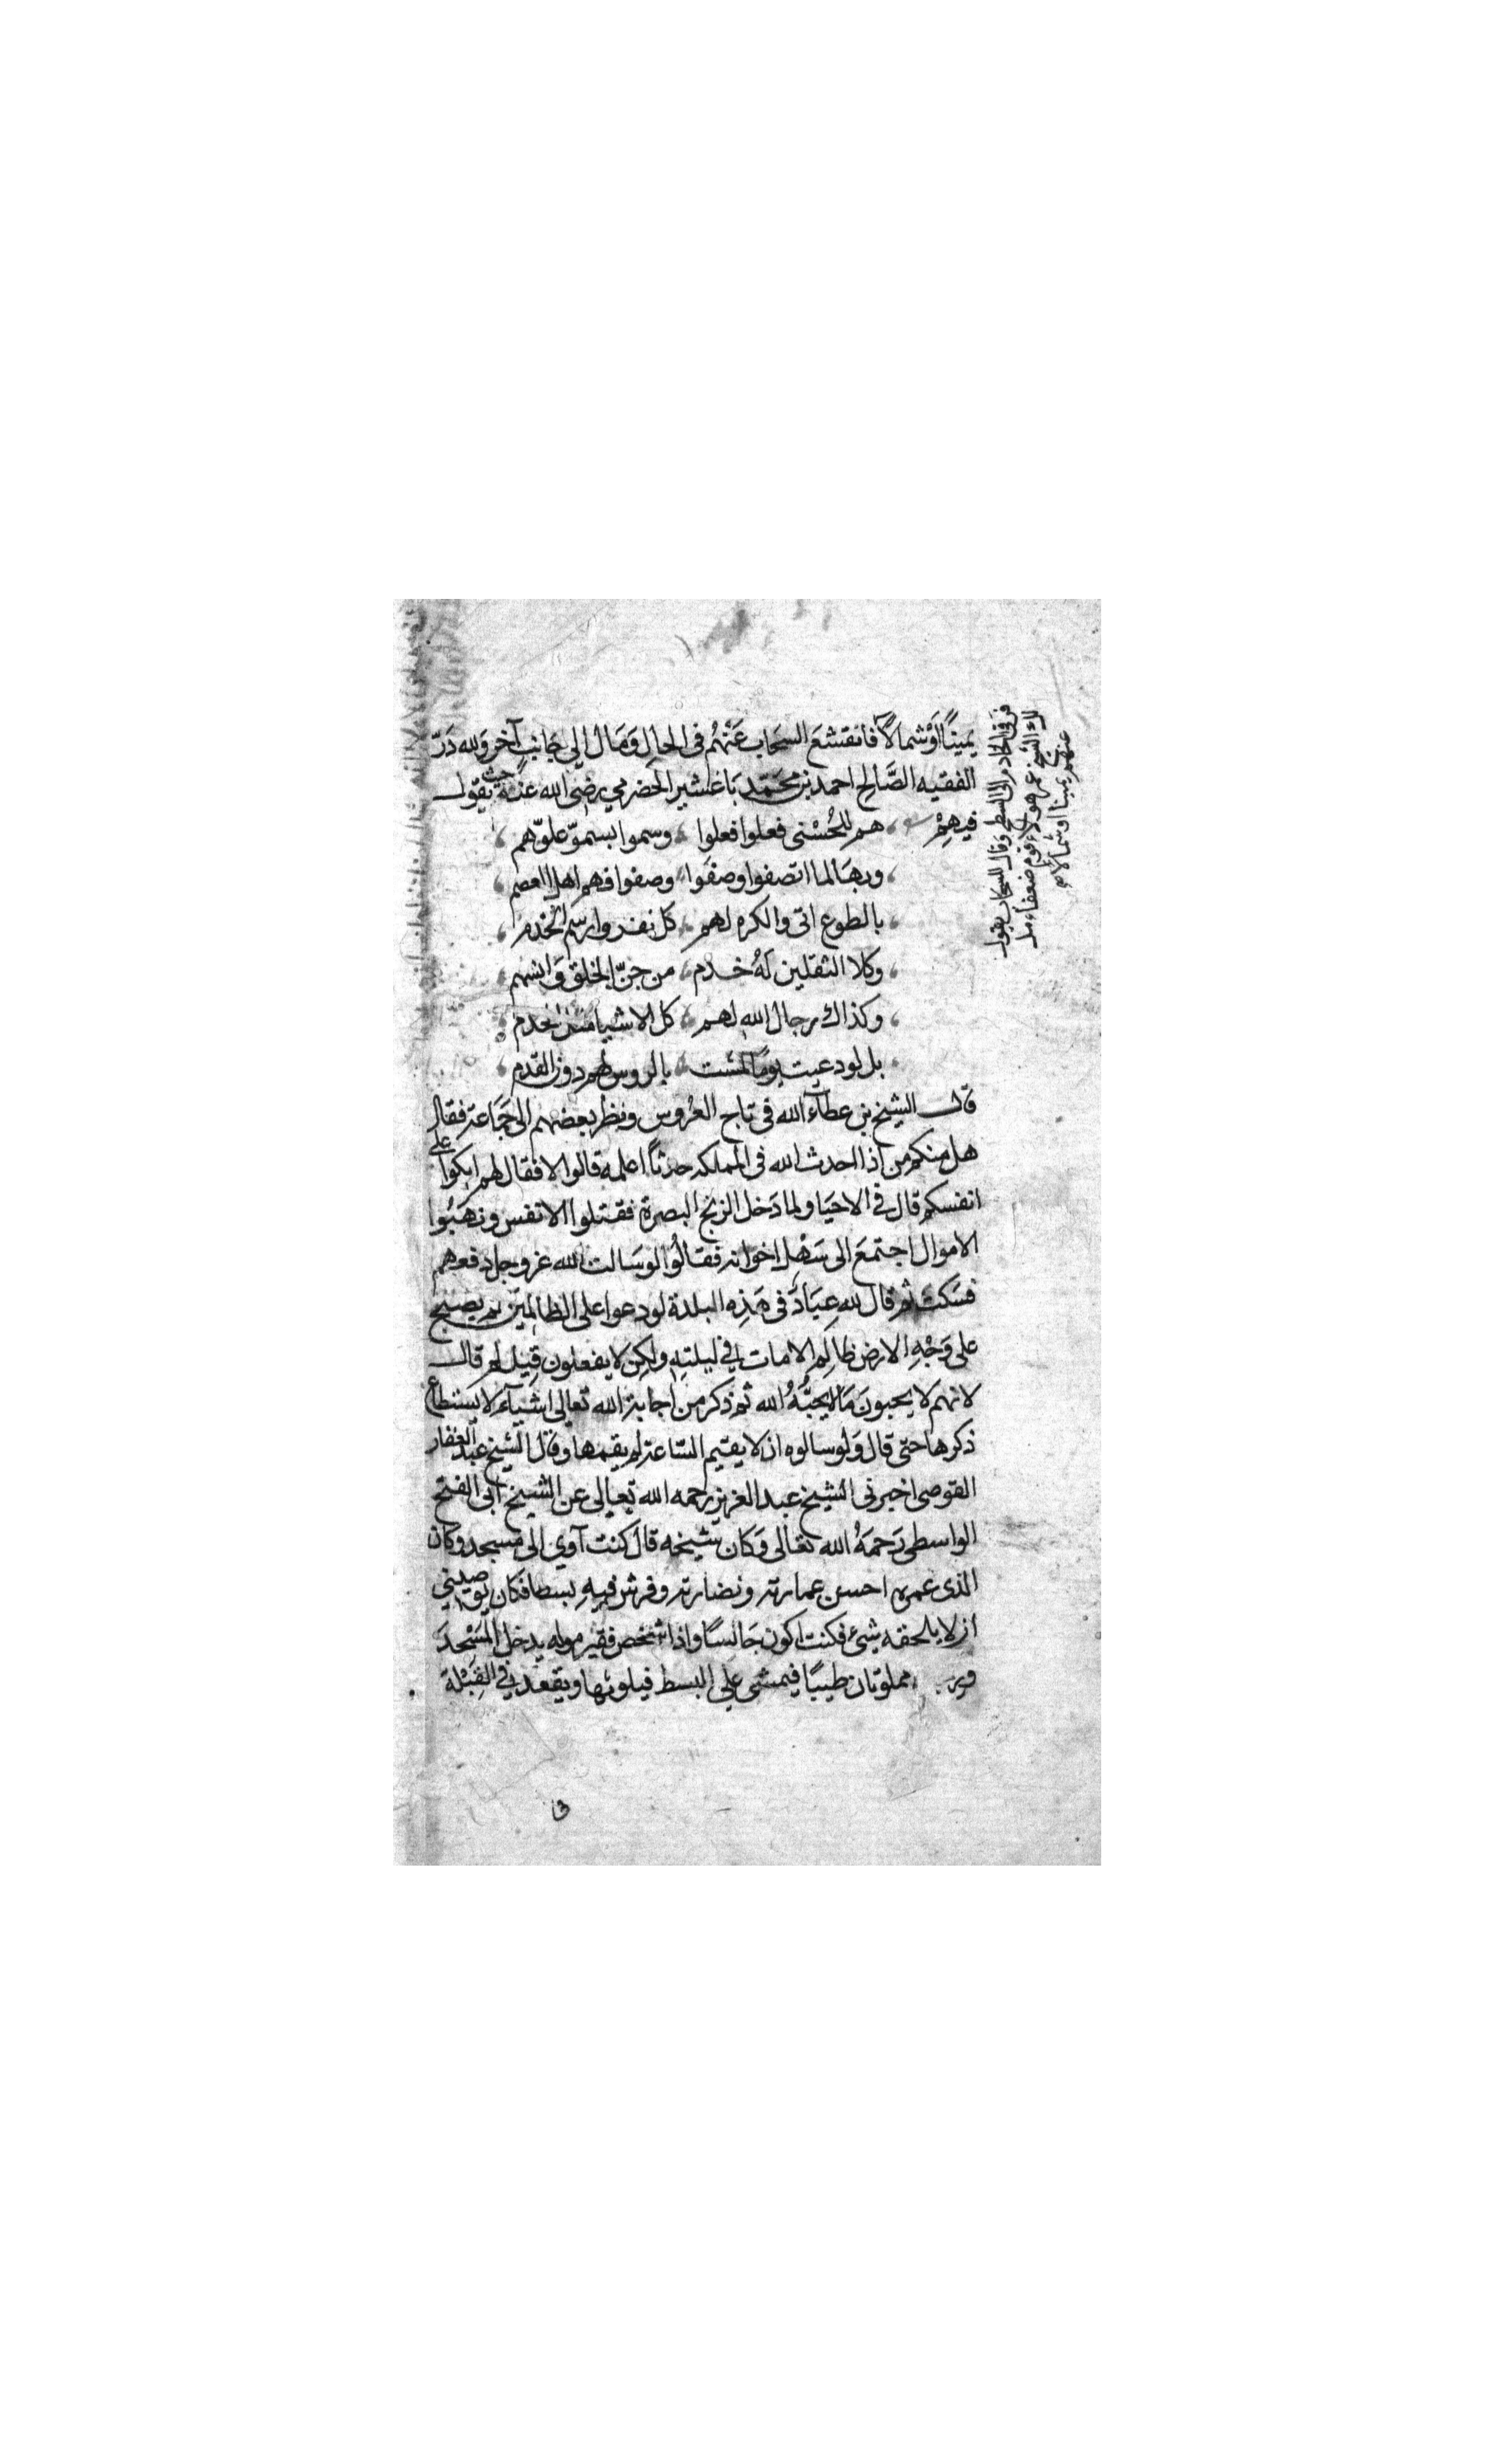 يَمينًا أوْ شمالًا فانقشعَ السحَاب عَنْهُم فى الحالِ وَمَال إلي جَانبٍ آخر وَلله دَرّ
الفقيه الصَّالح احمد بن محمّد بَاغشير الحضرمي رضى الله عنه حيث يقول
فيهِمْ هم للحُسْنى فعلوا فعلوا وسموا بسموّ علوّهم
وبهَا لما اتصفوا وصفَوا وصفوا فهم اهل العصم
بالطوع اتى والكره لهم كل نفروا رسم الخدم
وكلا الثقلين لَهُ خدم من جنّ الخلق وَانسهم
وكذاك رجال الله لهم كل الاشيا من الخدم
بل لو دعيت يومًا لمشت بالروس لهم دون القدم
قال الشيخ بن عطاء الله فى تاج العُروس ونظر بعضهم الى جَمَاعة فقال
هل منكم من اذا احدث الله فى المملكه حدثًا اعلمه قالوا لا فقال لهم ابكوا على
انفسكم قال فى الاحيَا ولما دَخل الزنج البصرة فقتلوا الانفس ونهَبُوا
الاموال اجتمعَ الى سَهْل اخوانه فقالُوا لو سَالت الله عز وجل دفعهم
فسَكت ثم قال لله عِبَادَ فى هَذِه البلدة لو دعوا على الظالمين لم يصبح
على وَجْهِ الارض ظالم الا مات في ليلته ولكن لا يفعلون قِيل لم قال
لانهم لا يحبون مَا لا يحبُّهُ الله ثم ذكر من اجابة الله تعالى اشيآء لا يستطاع
ذكرها حتى قال وَلو سالوه ان لا يقيم السّاعة لم يقمها وقال الشيخ عبد الغفار
القوصى اخبرنى الشيخ عبد العزيز رحمه الله تعالى عن الشيخ ابى الفتح
الواسطى رَحمَهُ الله تعالى وَكان شيخه قال كنت آوي الى مسجد وكان
الذى عمره احسن عمارته ونضارته وفرش فيهِ بسطا فكان يوصيني
ان لا يلحقه شئ فكنت اكون جَالسًا واذا شخص فقير موله يدخل المَسْجدَ
مملوتان طيبًا فيمشى على البسط فيلوثها ويقعد في القِبْلة
فرقى الخادم الى السطح وقال للسحاب يقول
لك الشيخ عمر هولاء قوم ضعفاء مل
عنهم يمينا او شمالا صح